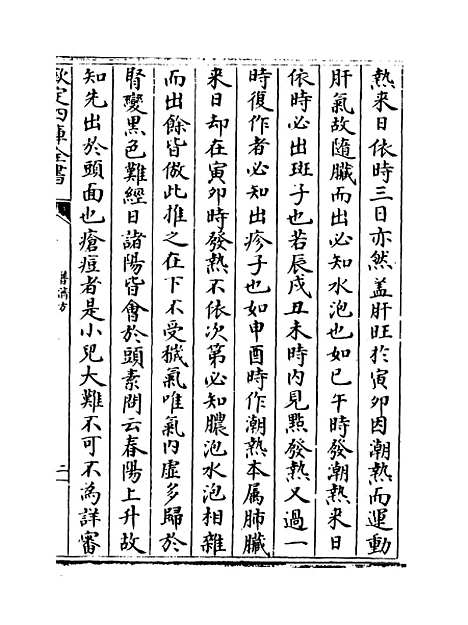 熱来日依時三日亦然盖肝旺扵寅卯因潮熱而運動
肝氣故隨臟而出必知水泡也如巳午時發潮熱来日
依時必出斑子也若辰戌丑未時内見㸃發熱又過一
時復作者必知出疹子也如申酉時作潮熱本属肺臟
来日却在寅卯時發熱不依次第必知膿泡水泡相雜
而出餘皆倣此推之在下不受穢氣唯氣内虚多歸於
腎變黒色難經曰諸陽皆會於頭素問云春陽上升故
知先出於頭面也瘡痘者是小兒大難不可不為詳審
欽定四庫全書
普濟方
二